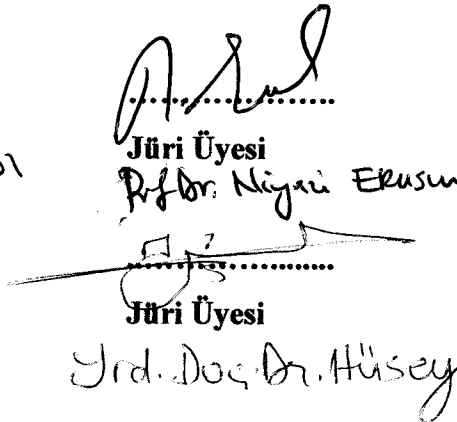 Jüri Üyesi
Prof. Dr. Niyazi
Jüri Üyesi
Yrd. Doç. Dr. Hüsey